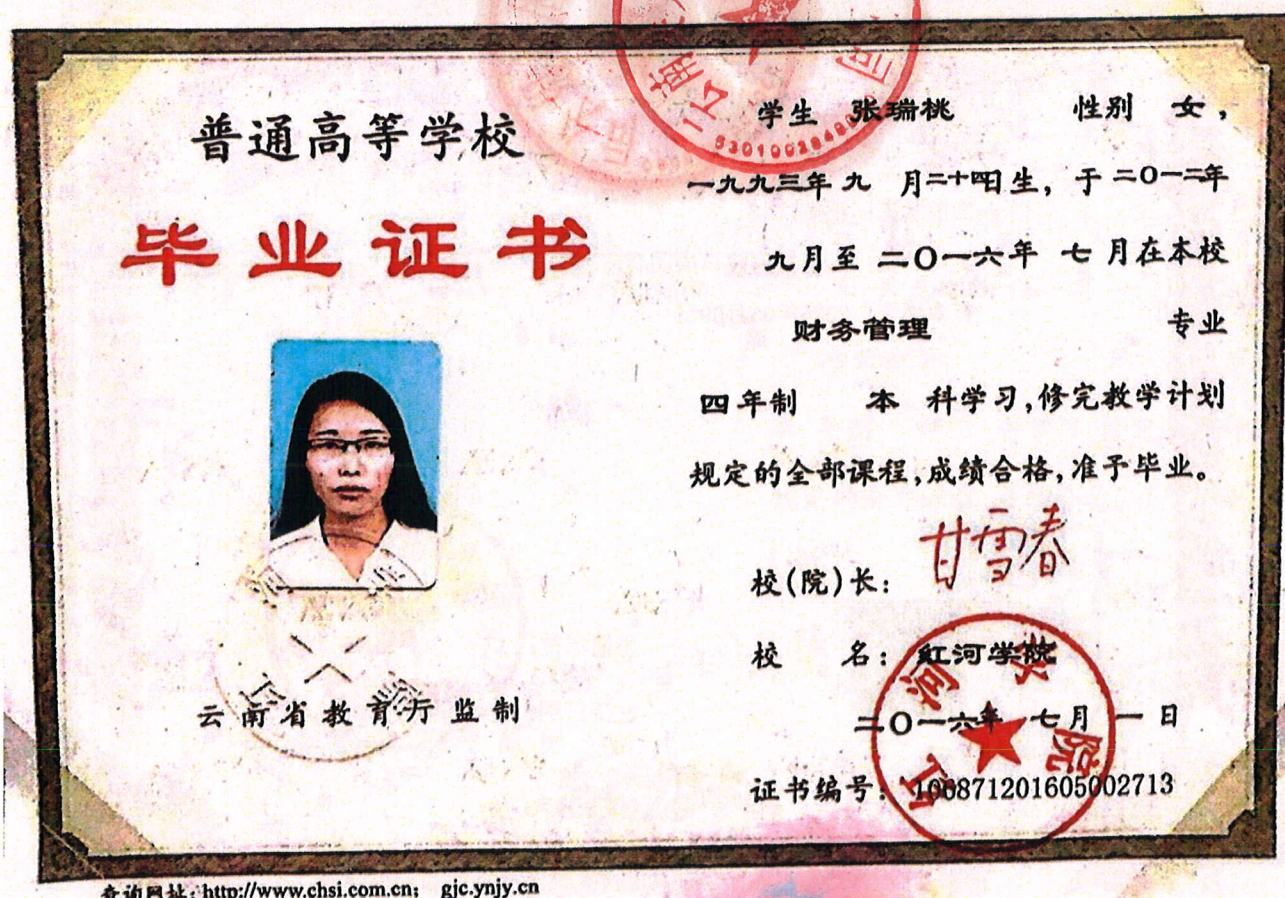 普通高等学校
毕业证书
云南省教育厅监制
学生 张瑞桃 性别 女，
一九九三年 九 月二十四日生，于 二〇一二年
九月至 二〇一六年 七 月在本校
财务管理 专业
四年制 本 科学习，修完教学计划
规定的全部课程，成绩合格，准予毕业。
校(院)长： 甘雪春
校 名： 红河学院
二〇一六年 七月 一 日
证书编号： 100871201605002713
红河学院
查询网址：http://www.chsi.com.cn; gjc.ynjy.cn